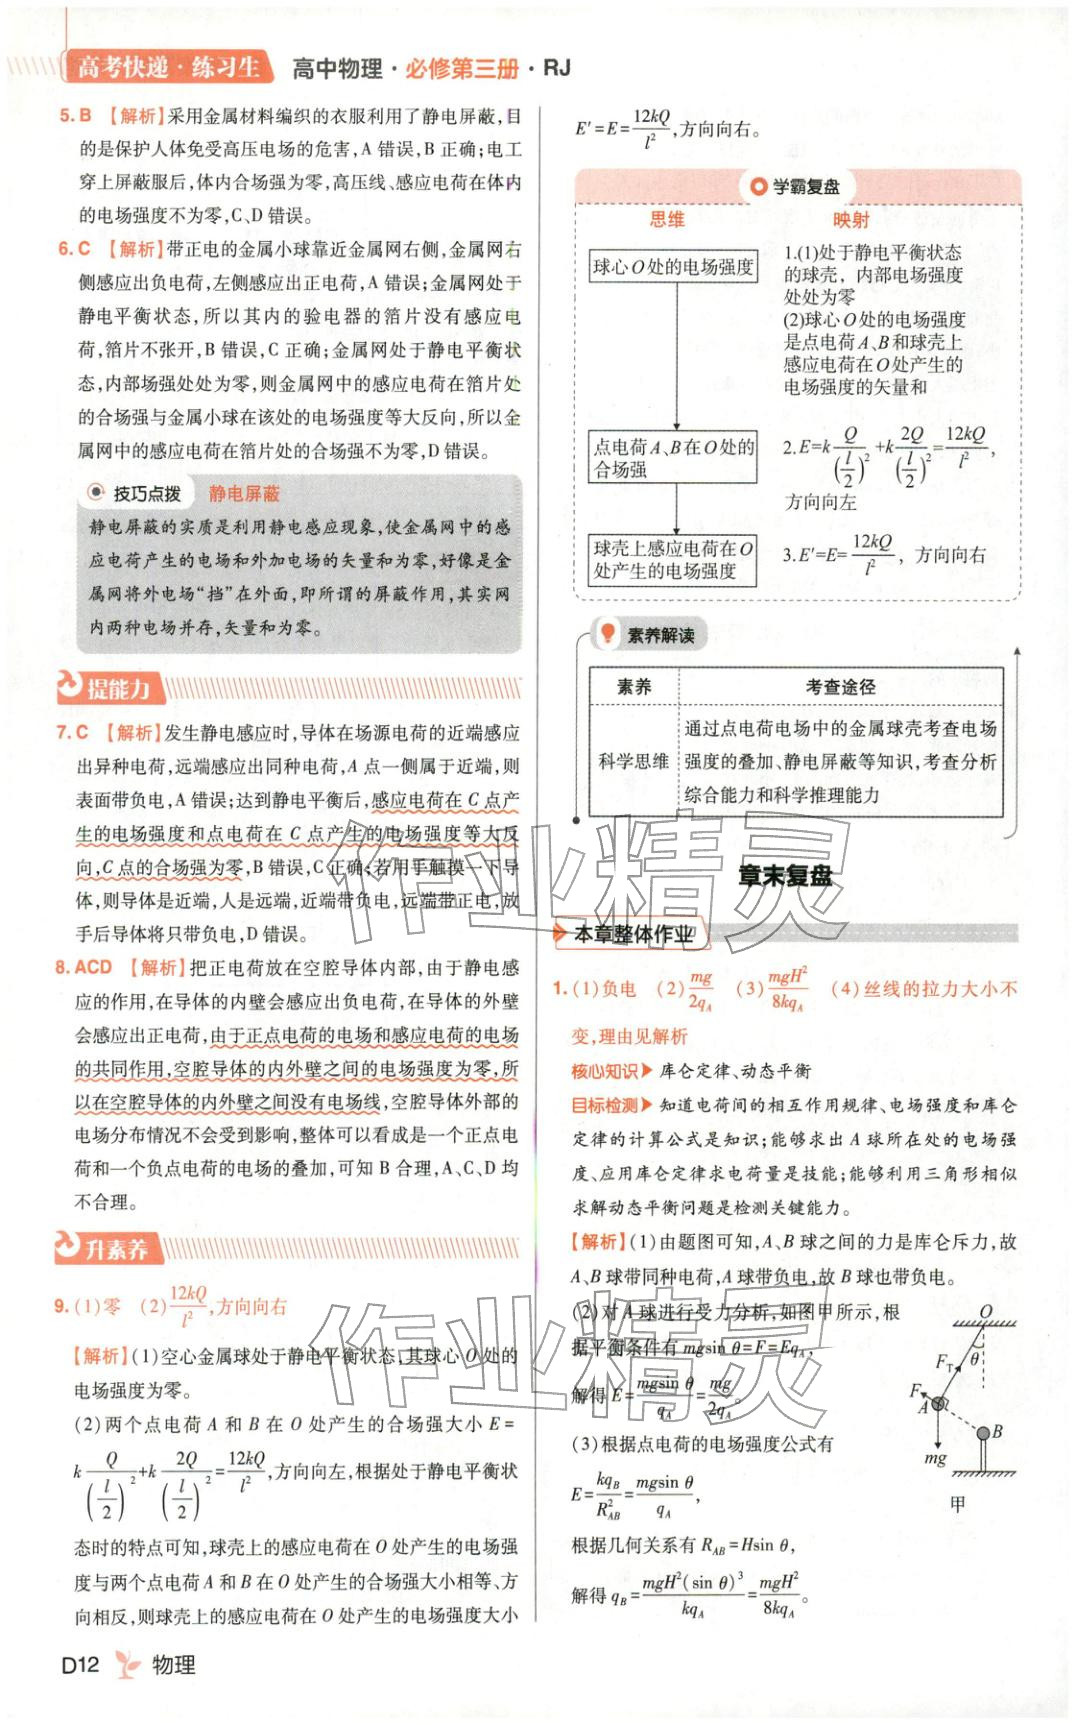 高考快递·练习生 高中物理·必修第三册·RJ
5. B 【解析】采用金属材料编织的衣服利用了静电屏蔽,目
的是保护人体免受高压电场的危害,A 错误,B 正确;电工
穿上屏蔽服后,体内合场强为零,高压线、感应电荷在体内
的电场强度不为零,C、D 错误。
6. C 【解析】带正电的金属小球靠近金属网右侧,金属网右
侧感应出负电荷,左侧感应出正电荷,A 错误;金属网处于
静电平衡状态,所以其内的验电器的箔片没有感应电
荷,箔片不张开,B 错误,C 正确;金属网处于静电平衡状
态,内部场强处处为零,则金属网中的感应电荷在箔片处
的合场强与金属小球在该处的电场强度等大反向,所以金
属网中的感应电荷在箔片处的合场强不为零,D 错误。
技巧点拨 静电屏蔽
静电屏蔽的实质是利用静电感应现象,使金属网中的感
应电荷产生的电场和外加电场的矢量和为零,好像是金
属网将外电场“挡”在外面,即所谓的屏蔽作用,其实网
内两种电场并存,矢量和为零。
提能力
7. C 【解析】发生静电感应时,导体在场源电荷的近端感应
出异种电荷,远端感应出同种电荷,A 点一侧属于近端,则
表面带负电,A 错误;达到静电平衡后,感应电荷在 C 点产
生的电场强度和点电荷在 C 点产生的电场强度等大反
向,C 点的合场强为零,B 错误,C 正确;若用手触摸一下导
体,则导体是近端,人是远端,近端带负电,远端带正电,放
手后导体将只带负电,D 错误。
8. ACD 【解析】把正电荷放在空腔导体内部,由于静电感
应的作用,在导体的内壁会感应出负电荷,在导体的外壁
会感应出正电荷,由于正点电荷的电场和感应电荷的电场
的共同作用,空腔导体的内外壁之间的电场强度为零,所
以在空腔导体的内外壁之间没有电场线,空腔导体外部的
电场分布情况不会受到影响,整体可以看成是一个正点电
荷和一个负点电荷的电场的叠加,可知 B 合理,A、C、D 均
不合理。
升素养
9. (1)零 (2)12kQ/l²,方向向右
【解析】(1)空心金属球处于静电平衡状态,其球心 O 处的
电场强度为零。
(2)两个点电荷 A 和 B 在 O 处产生的合场强大小 E=
k Q/(l/2)²+k 2Q/(l/2)²=12kQ/l²,方向向左,根据处于静电平衡状
态时的特点可知,球壳上的感应电荷在 O 处产生的电场强
度与两个点电荷 A 和 B 在 O 处产生的合场强大小相等、方
向相反,则球壳上的感应电荷在 O 处产生的电场强度大小
E′=E=12kQ/l²,方向向右。
学霸复盘
思维 映射
球心 O 处的电场强度
1.(1)处于静电平衡状态
的球壳,内部电场强度
处处为零
(2)球心 O 处的电场强度
是点电荷 A、B 和球壳上
感应电荷在 O 处产生的
电场强度的矢量和
点电荷 A、B 在 O 处的
合场强
2.E=k Q/(l/2)²+k 2Q/(l/2)²=12kQ/l²,
方向向左
球壳上感应电荷在 O
处产生的电场强度
3.E′=E=12kQ/l²,方向向右
素养解读
素养 考查途径
科学思维
通过点电荷电场中的金属球壳考查电场
强度的叠加、静电屏蔽等知识,考查分析
综合能力和科学推理能力
章末复盘
本章整体作业
1. (1)负电 (2)mg/2q_A (3)mgH²/8kq_A (4)丝线的拉力大小不
变,理由见解析
核心知识 库仑定律、动态平衡
目标检测 知道电荷间的相互作用规律、电场强度和库仑
定律的计算公式是知识;能够求出 A 球所在处的电场强
度、应用库仑定律求电荷量是技能;能够利用三角形相似
求解动态平衡问题是检测关键能力。
【解析】(1)由题图可知,A、B 球之间的力是库仑斥力,故
A、B 球带同种电荷,A 球带负电,故 B 球也带负电。
(2)对 A 球进行受力分析,如图甲所示,根
据平衡条件有 mgsin θ=F=Eq_A,
解得 E=mgsin θ/q_A=mg/2q_A。
(3)根据点电荷的电场强度公式有
E=kq_B/R²_AB=mgsin θ/q_A,
根据几何关系有 R_AB=Hsin θ,
解得 q_B=mgH²(sin θ)³/kq_A=mgH²/8kq_A。
O
θ
F_T
F
A
B
mg
甲
作业精灵
作业精灵
D12 物理